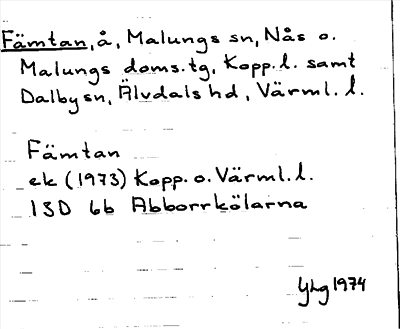 Fämtan, å, Malungs sn, Nås o.
Malungs doms.tg, Kopp.l. samt
Dalby sn, Älvdals hd, Värml.l.
Fämtan
ek (1973) Kopp. o. Värml.l.
13D 6b Abborrkölarna
YLg 1974